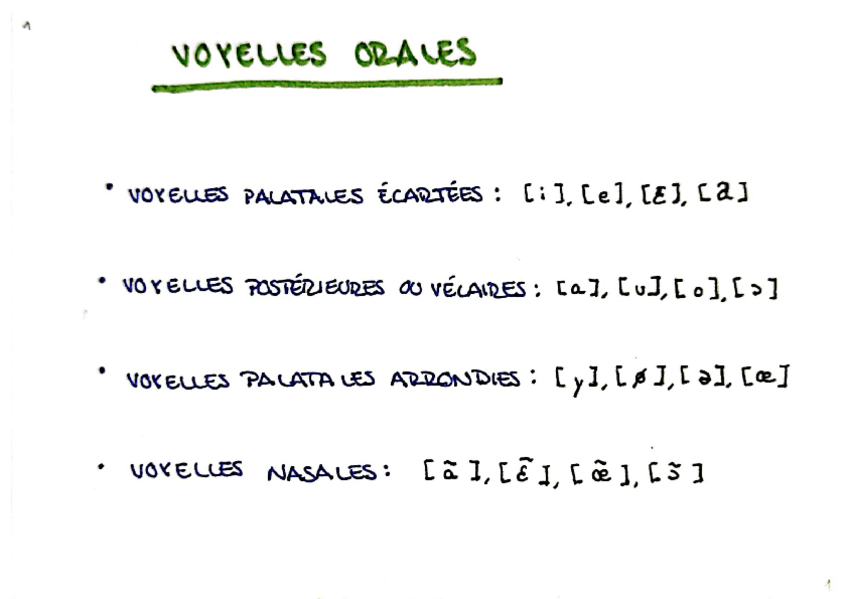 1
VOYELLES ORALES
• VOYELLES PALATALES ÉCARTÉES : [i], [e], [ɛ], [a]
• VOYELLES POSTÉRIEURES OU VÉLAIRES : [ɑ], [u], [o], [ɔ]
• VOYELLES PALATALES ARRONDIES : [y], [ø], [ə], [œ]
• VOYELLES NASALES : [ɑ̃], [ɛ̃], [œ̃], [ɔ̃]
1